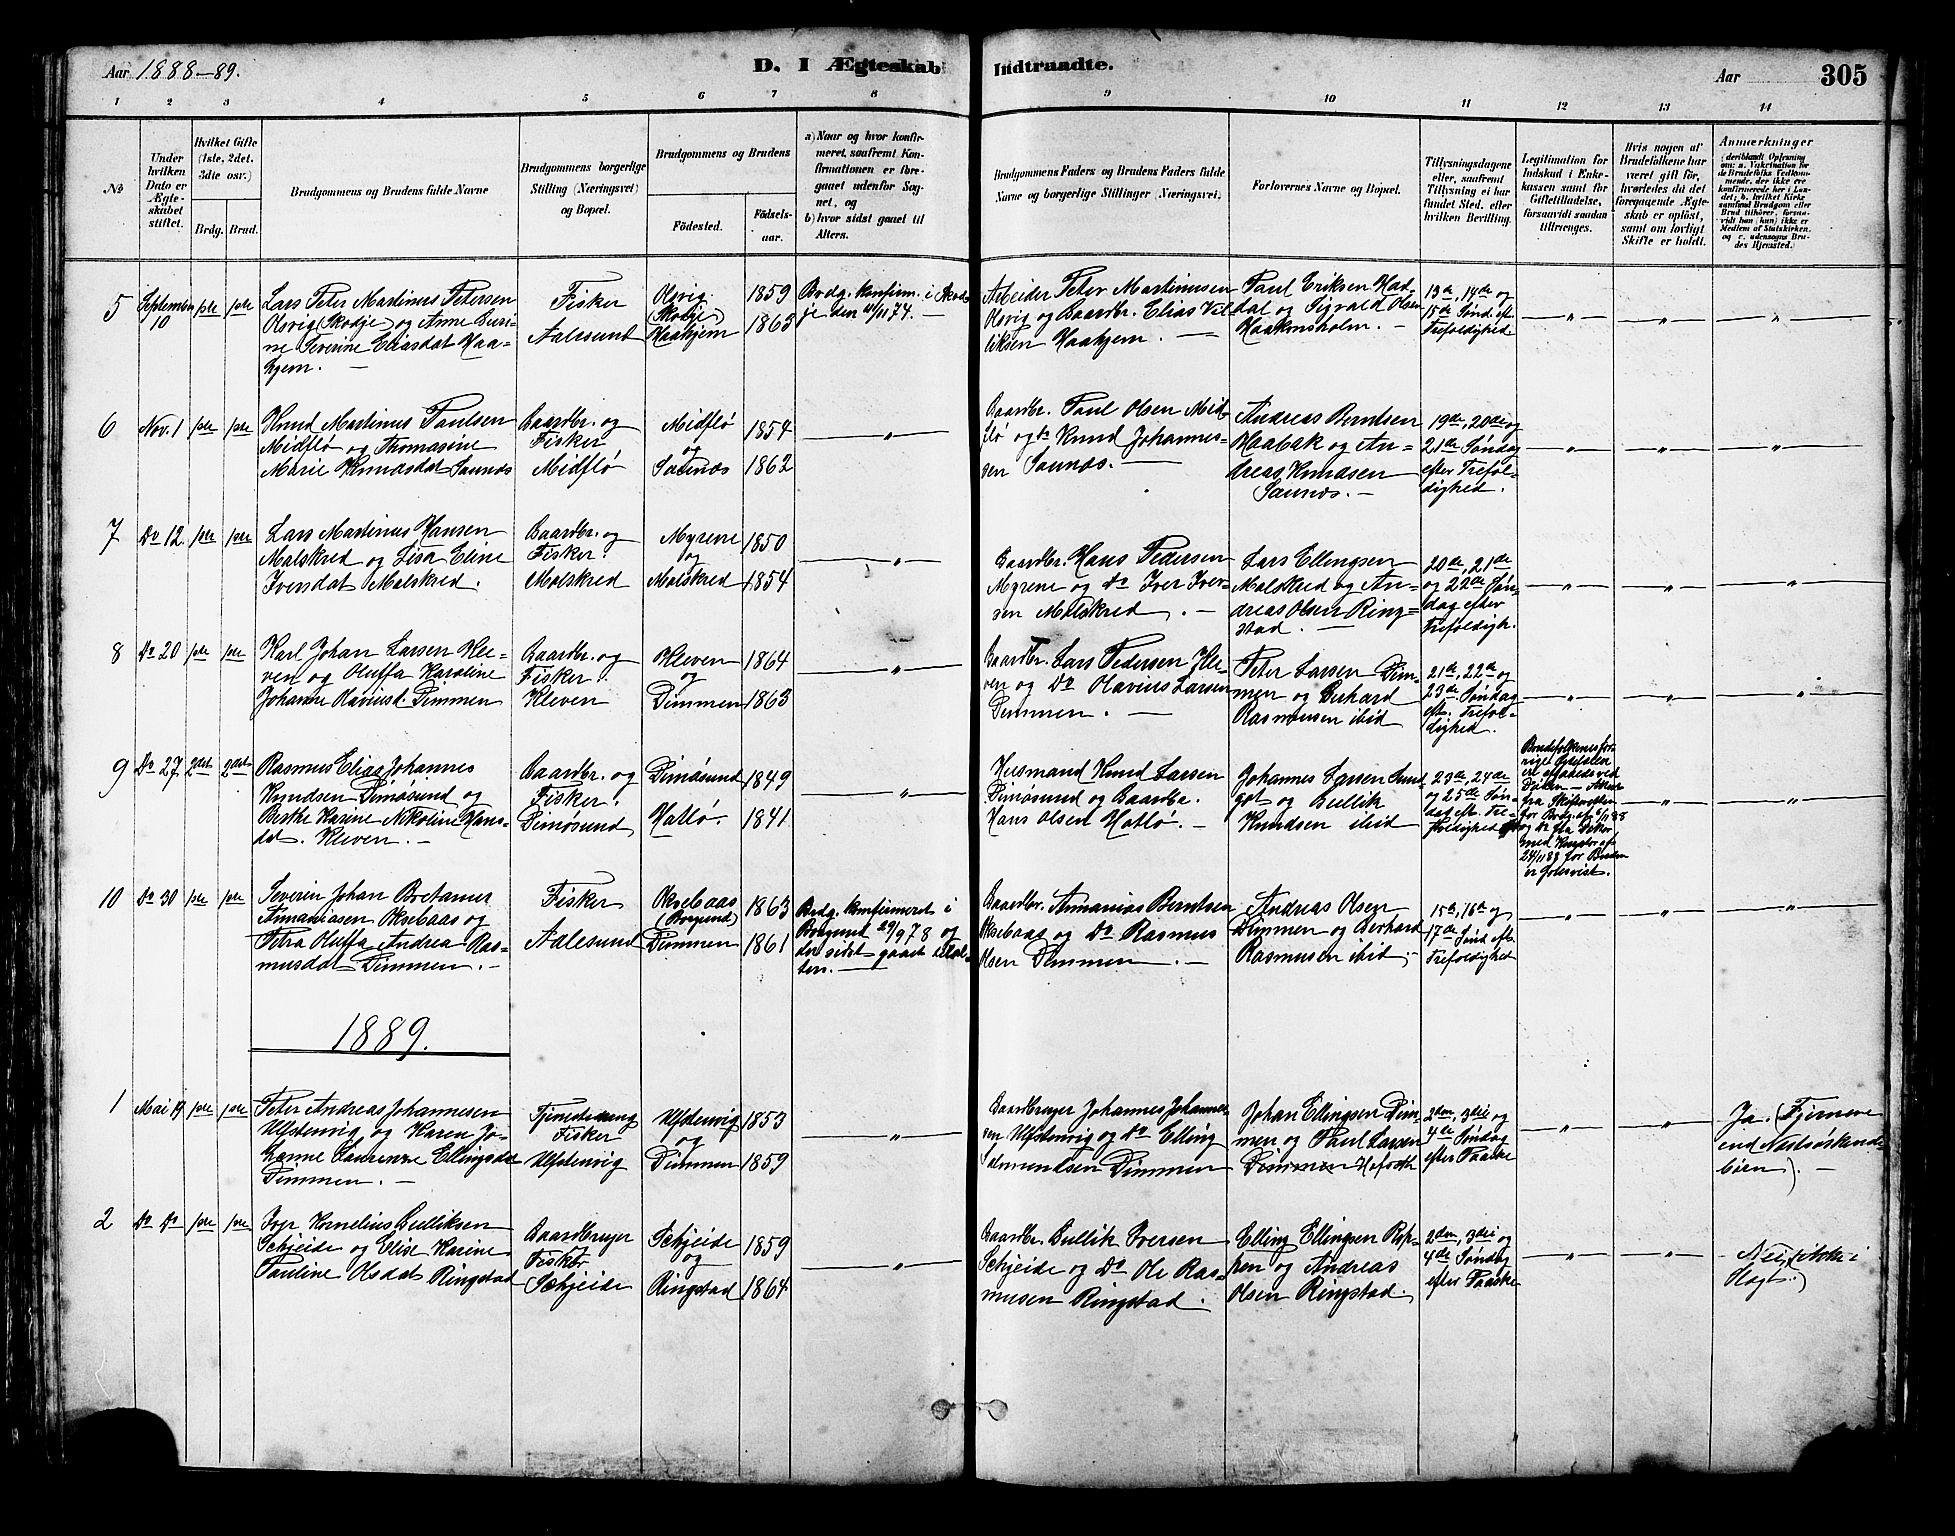 Aar 1888-89.
D. I Ægteskab Indtraadte.
Aar
305
1 2 3 4 5 6 7 8 9 10 11 12 13 14
No
Under hvilken Dato er Ægteskabet stiftet.
Hvilket Gifte (1ste, 2det, 3die osv.)
Brdg. Brud.
Brudgommens og Brudens fulde Navne
Brudgommens borgerlige Stilling (Næringsvei) og Bopæl.
Brudgommens og Brudens
Fødested.
Fødselsaar.
a) Naar og hvor konfirmeret, saafremt Konfirmationen er foregaaet udenfor Sognet, og
b) hvor sidst gaaet til Alters.
Brudgommens Faders og Brudens Faders fulde Navne og borgerlige Stillinger (Næringsvei).
Forlovernes Navne og Bopæl.
Tillysningsdagene eller, saafremt Tillysning ei har fundet Sted, efter hvilken Bevilling.
Legitimation for Indskud i Enkekassen samt for Giftetilladelse, forsaavidt saadan tiltrænges.
Hvis nogen af Brudefolkene har været gift før, hvorledes da det foregaaende Ægteskab er opløst, samt om lovligt Skifte er holdt.
Anmærkninger
5
September 10
1ste 1ste
Lars Peter Martinus Petersen
Olsvig (Skodje) og Anne Beri-
ne Severine Eliasdat Haa-
kjem.
Fisker
Aalesund
Olsvig
(Skodje)
Haakjem
1859
1863
Brdg. konfirm. i Skod-
je den 11/11 74.
Arbeider Peter Martinusen
Olsvig og Gaardbr. Elias Vil-
liksen Haakjem.
Paul Eriksen Had-
dal og Sigvald Olsen
Haakonsholm.
13de, 14de og
15de Sønd. eft.
Trefoldighed
6
Nov. 1
1ste 1ste
Knud Martinus Paulsen
Midflø og Thomasine
Marie Knudsdat Saunes
Gaardbr. og
Fisker
Midflø
Midflø
og
Saunes
1854
1862
Gaardbr. Paul Olsen Mid-
flø og do Knud Johannes-
sen Saunes.
Andreas Berntsen
Haabak og An-
dreas Knudsen
Saunes.
19de, 20de og
21de Søndag
efter Trefol-
dighed.
7
Do 12
1ste 1ste
Lars Martinus Hansen
Molskred og Lisa Eline
Iversdat Molskred.
Gaardbr. og
Fisker.
Molskred
Myrene
og
Molskred
1850
1854
Gaardbr. Hans Pedersen
Myrene og do Iver Iver-
sen Molskred.
Lars Ellingsen
Molskred og An-
dreas Olsen Ring-
stad.
20de, 21de
og 22de Søn-
dag efter
Trefoldigh.
8
Do 20
1ste 1ste
Karl Johan Larsen Kle-
ven og Oluffa Karoline
Johanne Olavusd. Dimmen
Gaardbr. og
Fisker.
Kleven
Kleven
og
Dimmen
1864
1863
Gaardbr. Lars Pedersen Kle-
ven og Do Olavius Larsen
Dimmen.
Peter Larsen Dim-
men og Gerhard
Rasmussen ibid
21de, 22de og
23de Søndag
eft. Trefol-
dighed.
9
Do 27
2det 2det
Rasmus Elias Johannes
Knudsen Dimøsund og
Berthe Karine Nikoline Hans-
dat. Kleven.
Gaardbr. og
Fisker.
Dimøsund
Dimøsund
Hatlø.
1849
1841
Husmand Knud Larsen
Dimøsund og Gaardbr.
Hans Olsen Hatlø.
Johannes Larsen Sund-
got og Gullik
Knudsen ibid
23de, 24de
og 25de Søn-
dag eft. Tre-
foldighed
Brudefolkenes for-
rige Ægtefæller
er afgaaede ved
Døden
10
Do 30
1ste 1ste
Severin Johan Brotanus
Annaniasen Oksebaas og
Petra Oluffa Andrea Ras-
musdat Dimmen.
Fisker
Aalesund
Oksebaas
(Borgund)
Dimmen
1863
1861
Brdg. konfirmeret i
Borgund 29/9 78 og
der sidst gaaet til Al-
ters.
Gaardbr. Annanias Berntsen
Oksebaas og Do Rasmus
Olsen Dimmen.
Andreas Olsen
Dimmen og Gerhard
Rasmusen ibid.
15de, 16de og
17de Sønd. eft.
Trefoldighed
1889.
1
Mai 19
1ste 1ste
Peter Andreas Johannesen
Ulfstenvig og Karen Jo-
hanne Laurenze Ellingsdat
Dimmen.
Tjenestedreng
Fisker
Ulfstenvig
Ulfstenvig
og
Dimmen
1853
1859
Gaardbruger Johannes Johannes-
sen Ulfstenvig og do Elling
Edmundsen Dimmen
Johan Ellingsen Dim-
men og Paul Larsen
Dimmen
2den, 3die og
4de Søndag
efter Paaske
Ja. (Fjernere
end Nærsøskende-
børn).
2
Do Do
1ste 1ste
Kornelius Gulliksen
Schjeide og Elise Karine
Pauline Olsdat Ringstad
Gaardbruger
Fisker
Schjeide
Schjeide
og
Ringstad
1859
1864
Gaardbr. Gullik Iversen
Schjeide og Do Ole Ras-
musen Ringstad.
Elling Ellingsen
og Andreas
Olsen Ringstad.
2den, 3die og
4de Søndag
efter Paaske
Nei (ikke i
Slægt.)